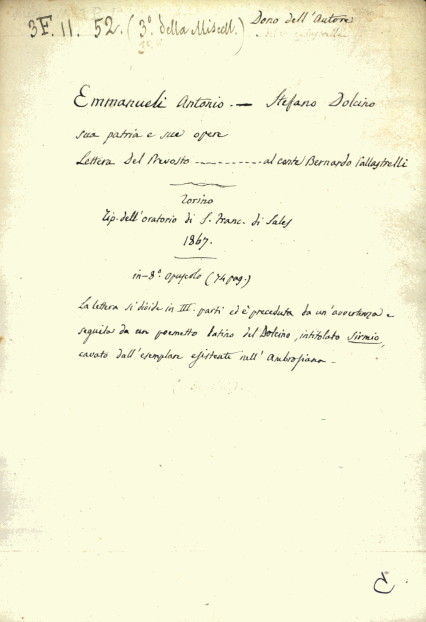 3F. II. 52. (3º. della Miscell.) Dono dell'Autore
Emmanueli Antonio. — Stefano Dolcino
sua patria e sue opere
Lettera Del Prevosto ---------- al conte Bernardo Pallastrelli
Torino
Tip. dell'oratorio di S. Franc. di Sales
1867.
in-8º. opuscolo (74 pag.)
La lettera si divide in III. parti ed è preceduta da un'avvertenza e
seguita da un poemetto latino del Dolcino, intitolato Sirmio,
cavato dall'esemplare esistente nell'Ambrosiana.